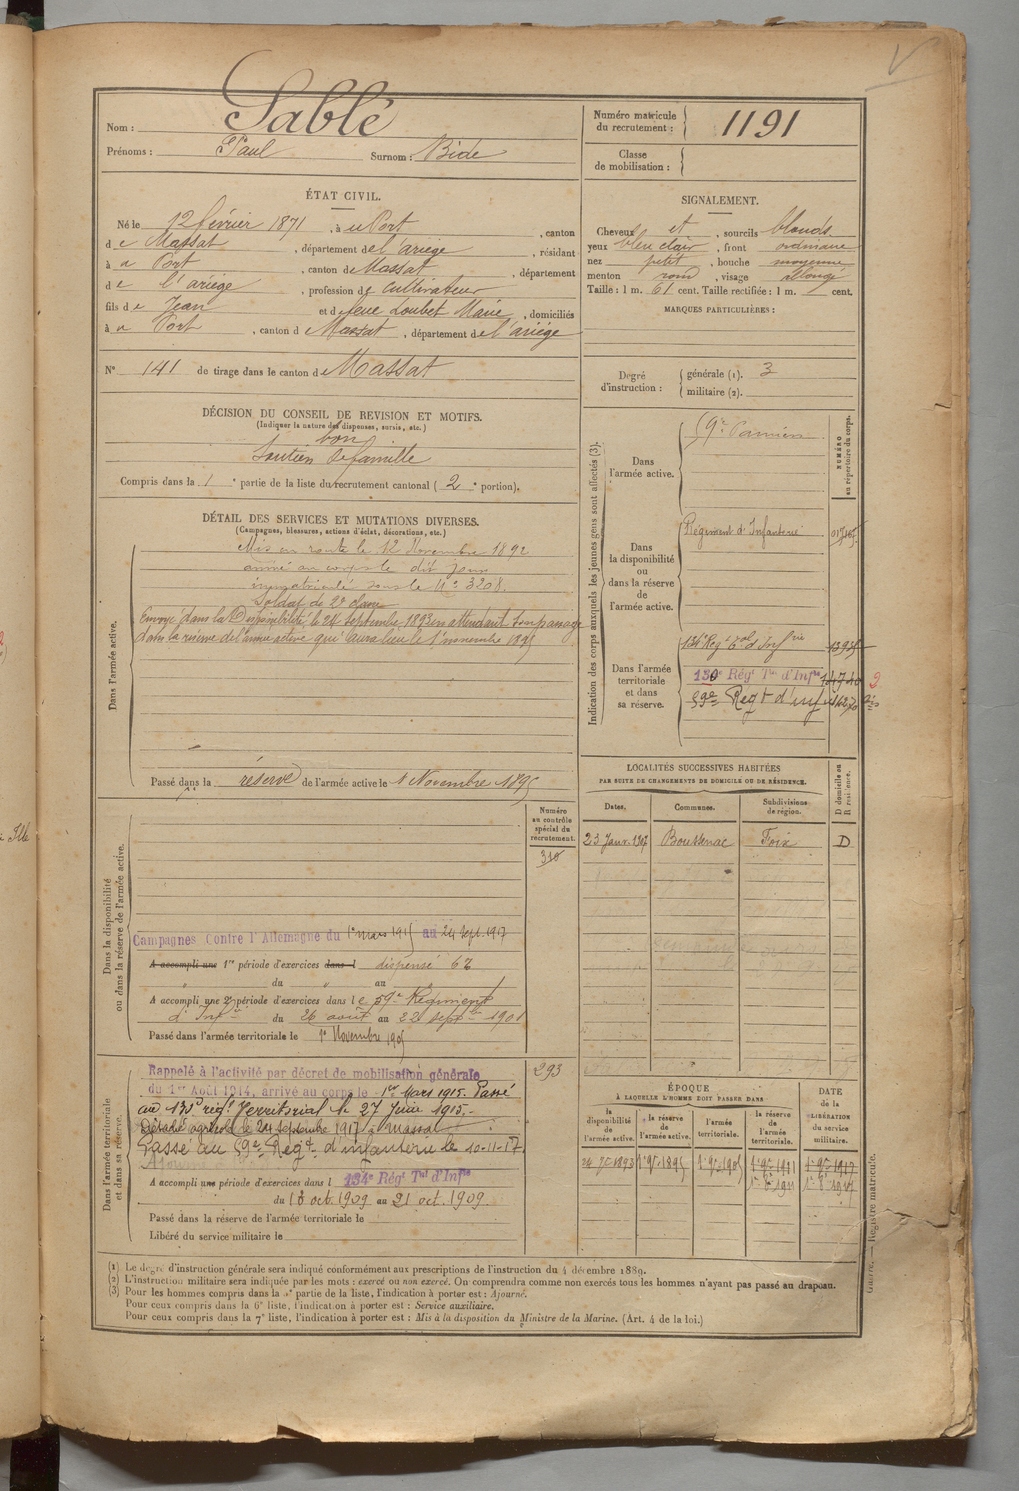 Nom : Sablé
Prénoms : Paul Surnom : Bide
Numéro matricule du recrutement : 1191
Classe de mobilisation :
ÉTAT CIVIL.
Né le 12 février 1871, à Le Port, canton
de Massat, département de l'ariège, résidant
à Le Port, canton de Massat, département
de l'ariège, profession de Cultivateur
fils de Jean et de feue Loubet Marie, domiciliés
à Le Port, canton de Massat, département de l'ariège
N° 141 de tirage dans le canton de Massat
SIGNALEMENT.
Cheveux et, sourcils blonds
yeux bleu clair, front ordinaire
nez petit, bouche moyenne
menton rond, visage allongé
Taille : 1 m. 61 cent. Taille rectifiée : 1 m. cent.
MARQUES PARTICULIÈRES :
Degré d'instruction : générale (1). 3
militaire (2).
DÉCISION DU CONSEIL DE REVISION ET MOTIFS.
(Indiquer la nature des dispenses, sursis, etc.)
bon
Soutien de famille
Compris dans la 1e partie de la liste du recrutement cantonal (2e portion).
DÉTAIL DES SERVICES ET MUTATIONS DIVERSES.
(Campagnes, blessures, actions d'éclat, décorations, etc.)
Dans l'armée active.
Mis en route le 12 Novembre 1892
arrivé au corps le dit jour
immatriculé sous le N° 3208.
Soldat de 2e classe
Envoyé dans la Disponibilité le 24 septembre 1893 en attendant son passage
dans la réserve de l'armée active qui aura lieu le 1er novembre 1895
Passé dans la réserve de l'armée active le 1 Novembre 1895
Indication des corps auxquels les jeunes gens sont affectés (3).
NUMÉRO au répertoire du corps.
Dans l'armée active.
59e Pamiers
Dans la disponibilité ou dans la réserve de l'armée active.
Régiment d'Infanterie
Dans l'armée territoriale et dans sa réserve.
134e Reg t Tal d'Inf rie
130e Régt Tal d'Infie
59e Regt d'inf
LOCALITÉS SUCCESSIVES HABITÉES
PAR SUITE DE CHANGEMENTS DE DOMICILE OU DE RÉSIDENCE.
D domicile ou R résidence.
Dates. Communes. Subdivisions de région.
23 Janv. 1907 Boussenac Foix D
Dans la disponibilité ou dans la réserve de l'armée active.
Numéro au contrôle spécial du recrutement.
310
Campagnes Contre l'Allemagne du 1er mars 1915 au 24 Sept. 1917
A accompli une 1re période d'exercices dans l dispensé 62
du au
A accompli une 2e période d'exercices dans le 59e Régiment
d'Infie du 26 août au 22 septbre 1901
Passé dans l'armée territoriale le 1er Novembre 1905
Dans l'armée territoriale et dans sa réserve.
293
Rappelé à l'activité par décret de mobilisation générale
du 1er Août 1914, arrivé au corps le 1er Mars 1915. Passé
au 135e régt Territorial le 27 Juin 1915.
Détaché agricole le 24 septembre 1917 à Massat
Passé au 59e Regt d'infanterie le 10-11-17
A accompli une période d'exercices dans l 134e Régt Tal d'Infie
du 13 oct. 1909 au 21 oct. 1909.
Passé dans la réserve de l'armée territoriale le
Libéré du service militaire le
ÉPOQUE
À LAQUELLE L'HOMME DOIT PASSER DANS
la disponibilité de l'armée active. la réserve de l'armée active. l'armée territoriale. la réserve de l'armée territoriale.
DATE de la LIBÉRATION du service militaire.
24 7bre 1893 1er 9bre 1895 1er 9bre 1905 1er 9bre 1911 1er 9bre 1917
(1) Le degré d'instruction générale sera indiqué conformément aux prescriptions de l'instruction du 4 décembre 1889.
(2) L'instruction militaire sera indiquée par les mots : exercé ou non exercé. On comprendra comme non exercés tous les hommes n'ayant pas passé au drapeau.
(3) Pour les hommes compris dans la 5e partie de la liste, l'indication à porter est : Ajourné.
Pour ceux compris dans la 6e liste, l'indication à porter est : Service auxiliaire.
Pour ceux compris dans la 7e liste, l'indication à porter est : Mis à la disposition du Ministre de la Marine. (Art. 4 de la loi.)